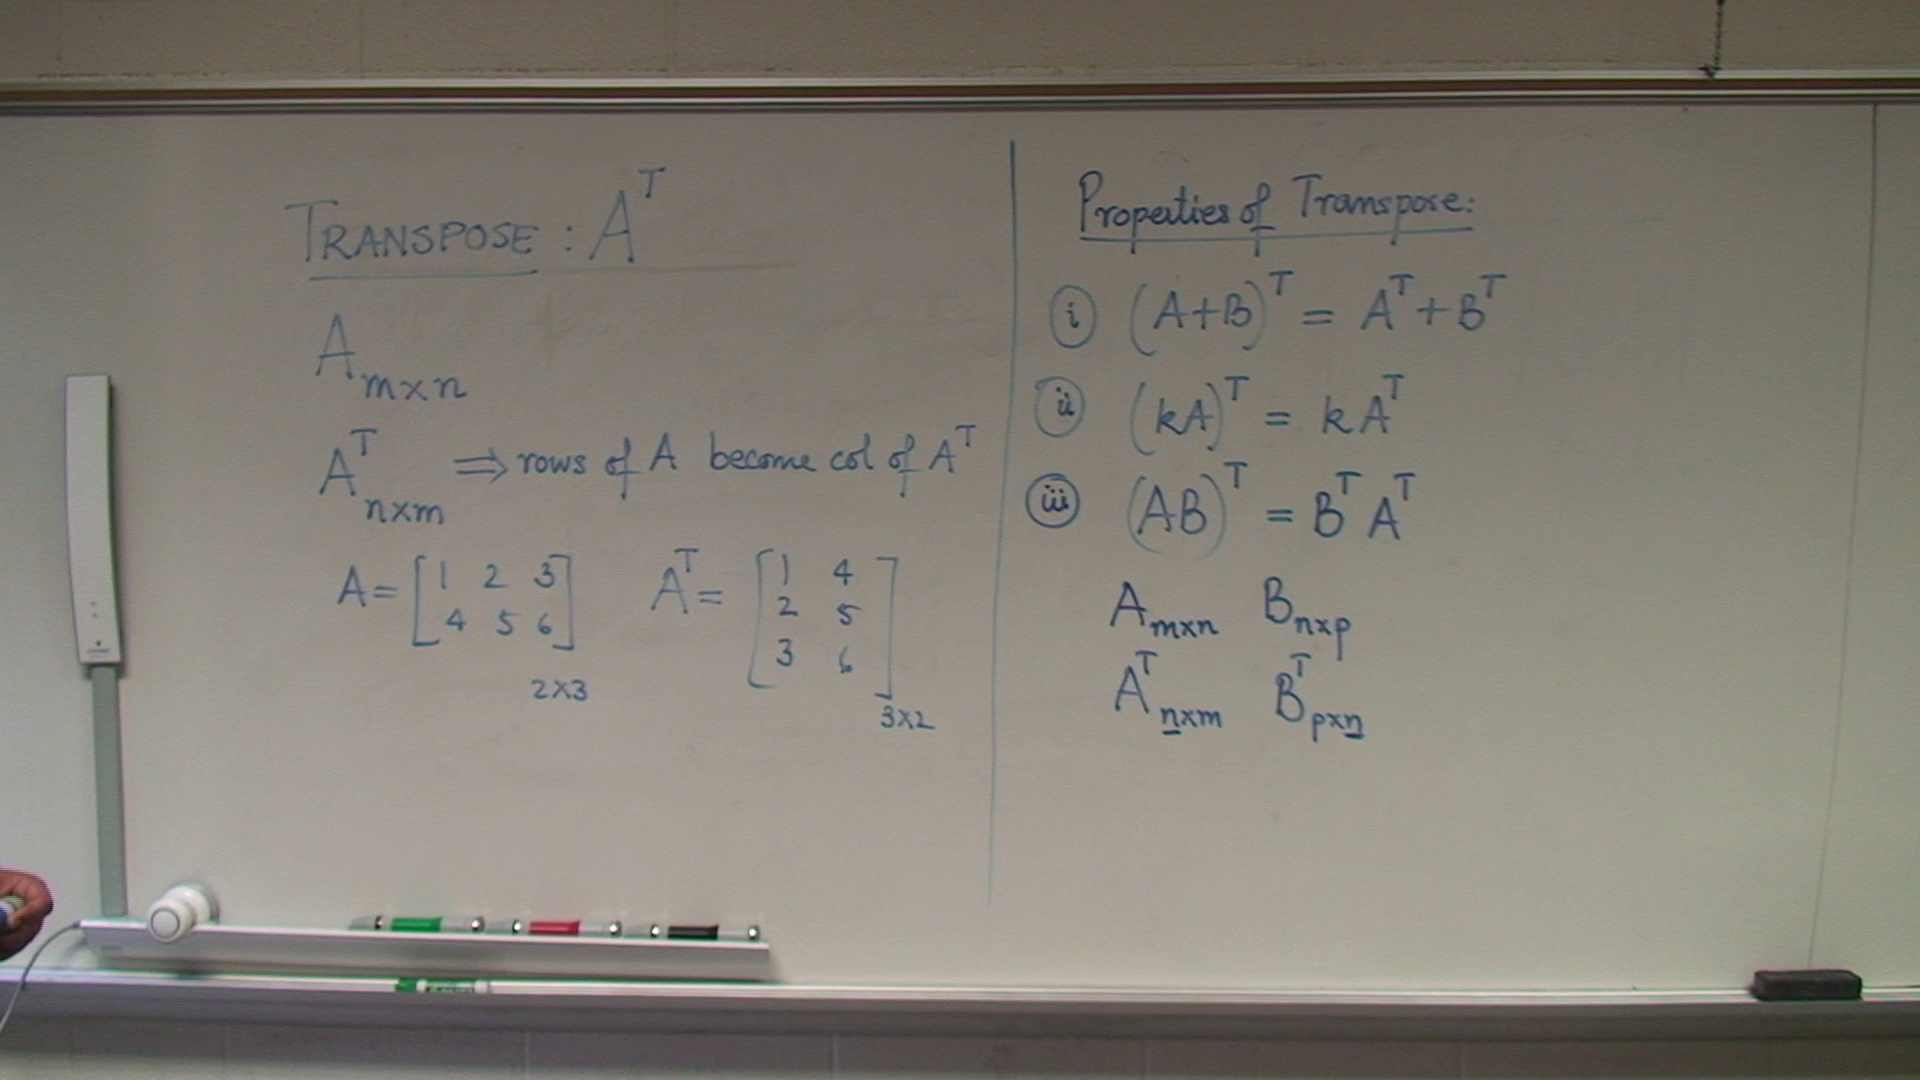 TRANSPOSE : A^T
A_{m×n}
A^T_{n×m} ⇒ rows of A become col of A^T
A = [1 2 3
4 5 6] 2×3
A^T = [1 4
2 5
3 6] 3×2
Properties of Transpose:
(i) (A+B)^T = A^T + B^T
(ii) (kA)^T = k A^T
(iii) (AB)^T = B^T A^T
A_{m×n} B_{n×p}
A^T_{n×m} B^T_{p×n}